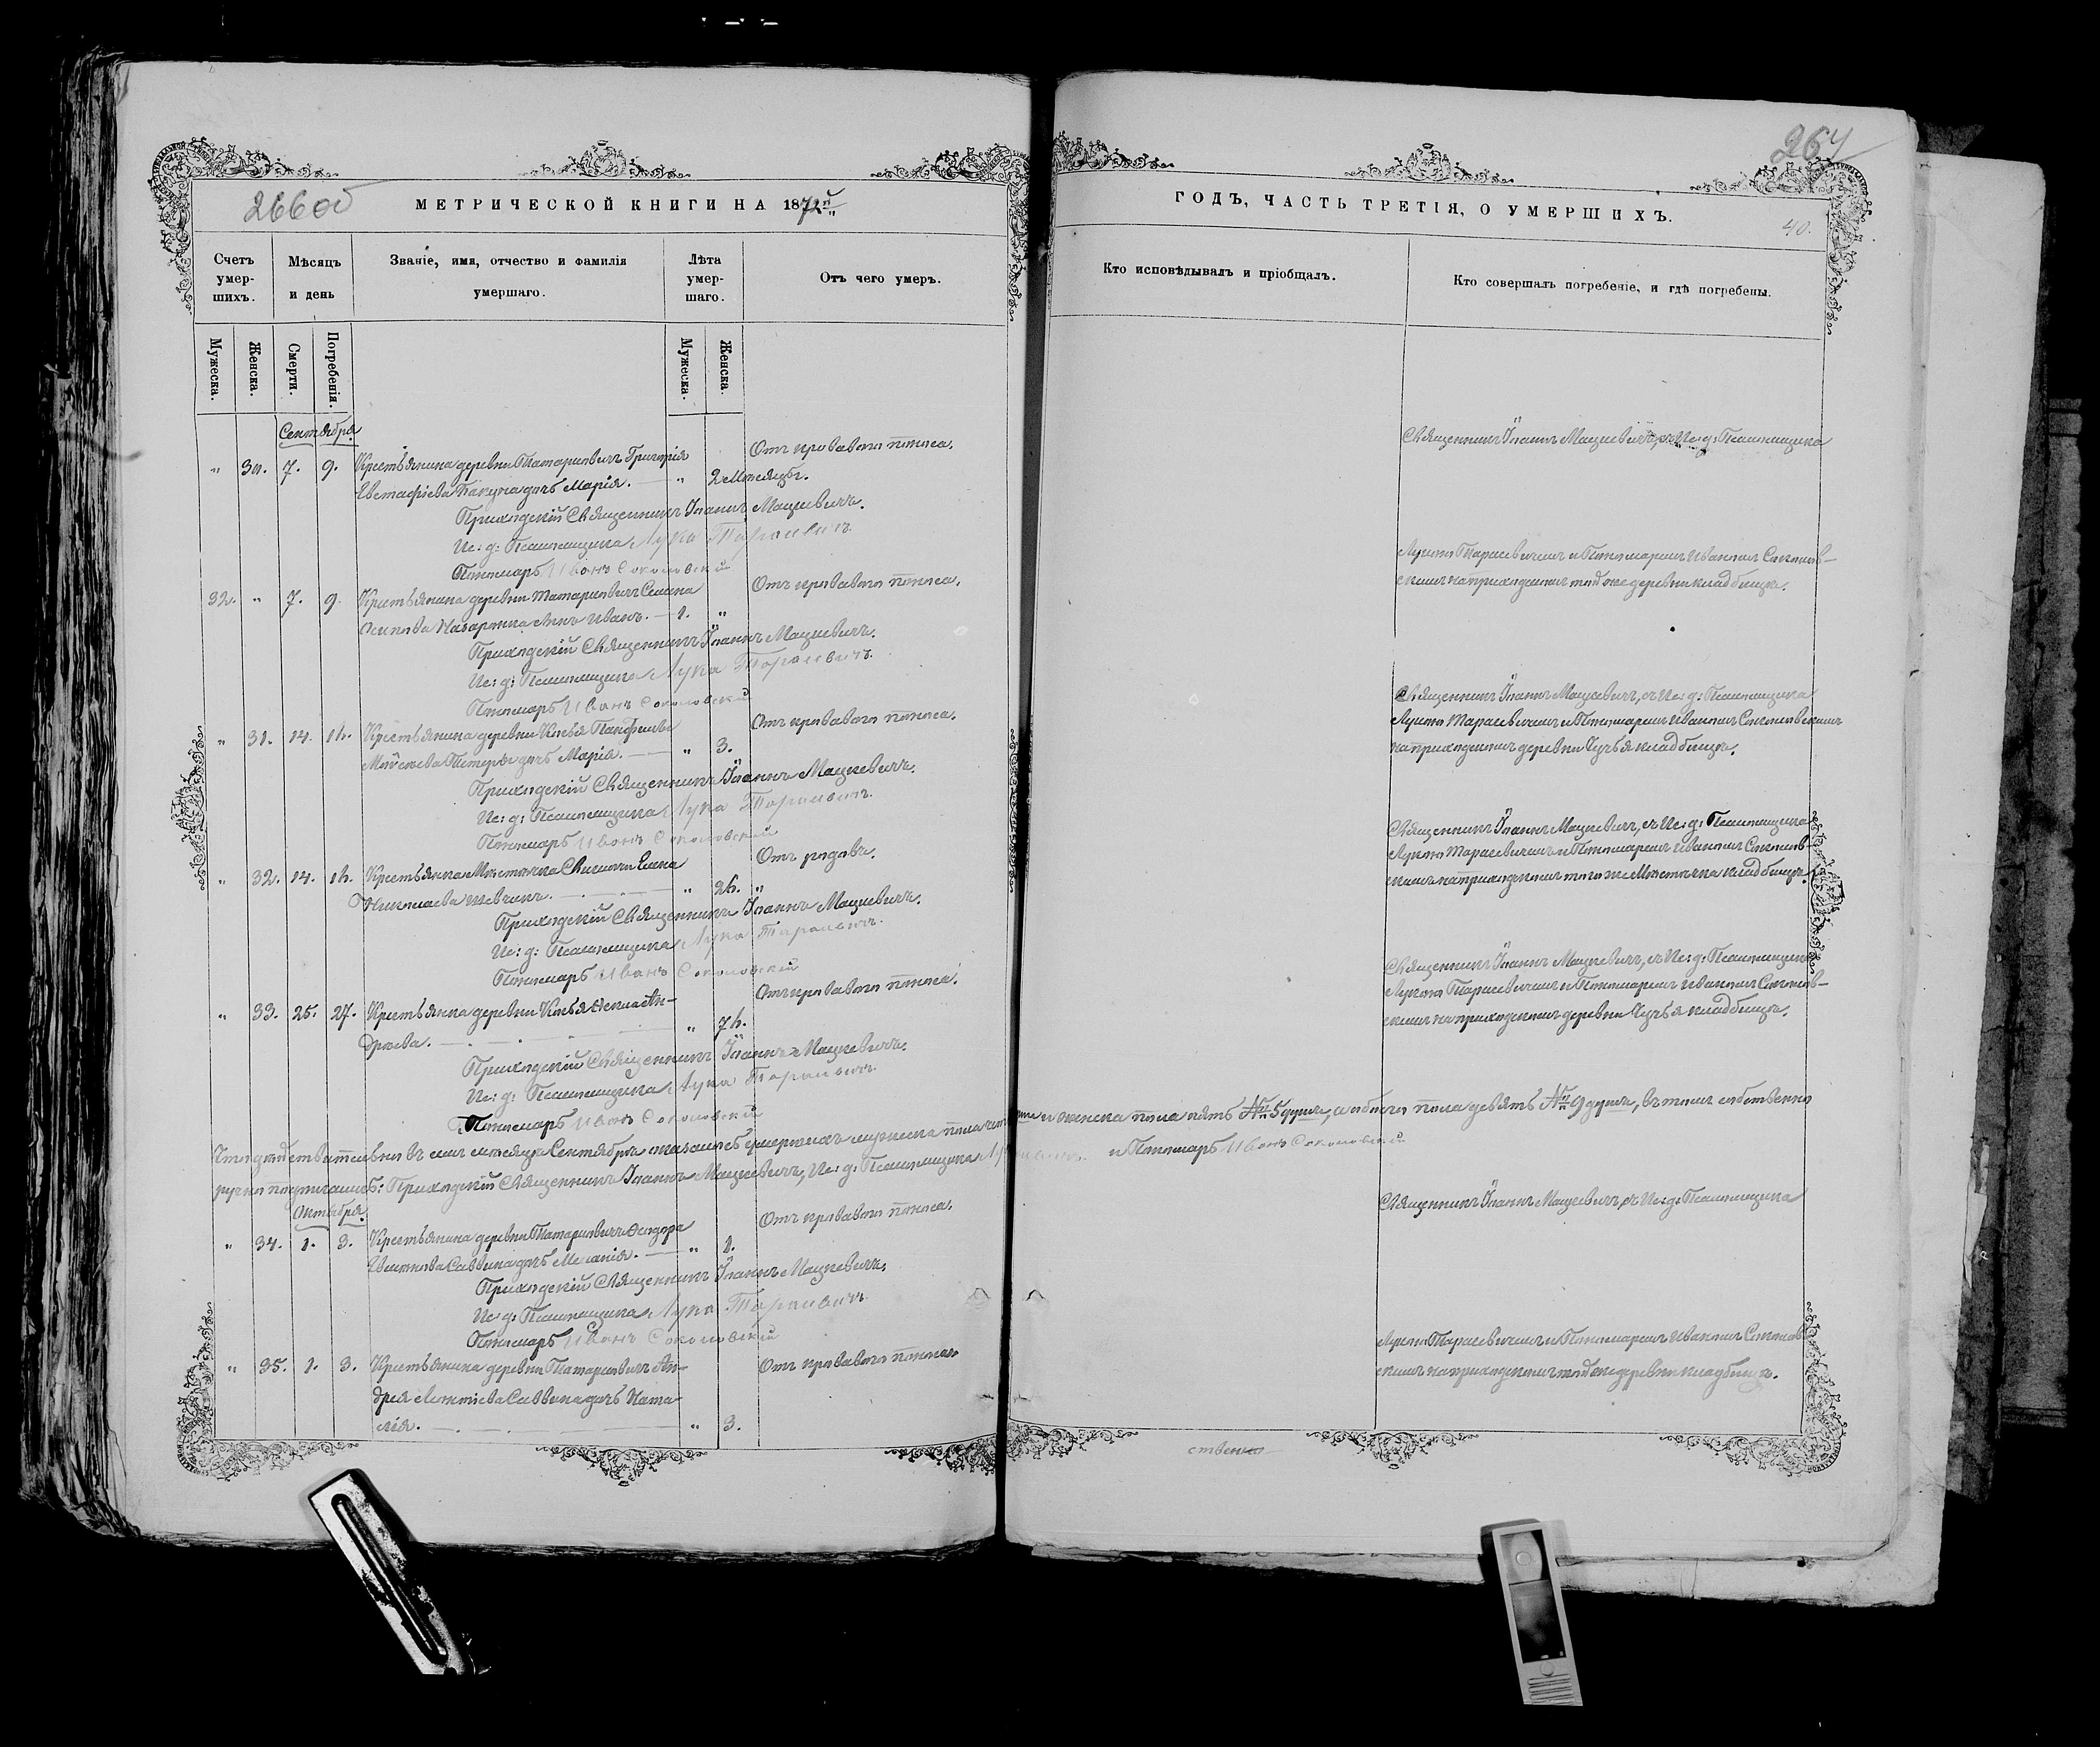 264
266 об
МЕТРИЧЕСКОЙ КНИГИ НА 1872й
ГОДЪ, ЧАСТЬ ТРЕТІЯ, О УМЕРШИХЪ.
40.
Счетъ умер-шихъ.
Мѣсяцъ и день
Званіе, имя, отчество и фамилія умершаго.
Лѣта умер-шаго.
Отъ чего умеръ.
Кто исповѣдывалъ и пріобщалъ.
Кто совершалъ погребеніе, и гдѣ погребены.
Мужеска.
Женска.
Смерти.
Погребенія.
Мужеска.
Женска.
Сентября
„ 30. 7. 9. Крестьянина деревни Татариновичъ Григорія
Евстафіева дочь Марія. — „ 2 Мѣсяцы.
Отъ кроваваго поноса.
Священникъ Іоаннъ Мацкевичъ, съ Ис: д: Псаломщика
Приходскій Священникъ Іоаннъ Мацкевичъ.
Ис: д: Псаломщика Лука Тарасевичъ.
Пономарь Иванъ Соколовскій
Лукою Тарасевичемъ и Пономаремъ Иваномъ Соколов-
скимъ на приходскомъ той же деревни кладбищѣ.
32. „ 7. 9. Крестьянина деревни Татариновичъ Семена
Осипова сынъ Иванъ. — 1. „
Отъ кроваваго поноса.
Приходскій Священникъ Іоаннъ Мацкевичъ.
Ис: д: Псаломщика Лука Тарасевичъ.
Пономарь Иванъ Соколовскій
Священникъ Іоаннъ Мацкевичъ, съ Ис: д: Псаломщика
Лукою Тарасевичемъ и Пономаремъ Иваномъ Соколовскимъ
на приходскомъ деревни кладбищѣ.
„ 31. 14. 16. Крестьянина деревни
дочь Марія. — „ 3.
Отъ кроваваго поноса.
Приходскій Священникъ Іоаннъ Мацкевичъ.
Ис: д: Псаломщика Лука Тарасевичъ.
Пономарь Иванъ Соколовскій
Священникъ Іоаннъ Мацкевичъ, съ Ис: д: Псаломщика
Лукою Тарасевичемъ и Пономаремъ Иваномъ Соколов-
скимъ на приходскомъ того же Мѣстечка кладбищѣ.
„ 32. 14. 16. Крестьянка Мѣстечка
Николаева Шевчикъ. — „ 26. „
Отъ родовъ.
Приходскій Священникъ Іоаннъ Мацкевичъ.
Ис: д: Псаломщика Лука Тарасевичъ.
Пономарь Иванъ Соколовскій
Священникъ Іоаннъ Мацкевичъ, съ Ис: д: Псаломщика
Лукою Тарасевичемъ и Пономаремъ Иваномъ Соколов-
скимъ на приходскомъ деревни кладбищѣ.
„ 33. 25. 27. Крестьянка деревни Ан-
дреева. — „ 76.
Отъ кроваваго поноса.
Приходскій Священникъ Іоаннъ Мацкевичъ.
Ис: д: Псаломщика Лука Тарасевичъ.
Пономарь Иванъ Соколовскій
Что дѣйствительно въ семъ мѣсяцѣ Сентябрѣ умершихъ мужеска пола и женска пола пять № 5 душъ, а обоего пола девять № 9 душъ, въ томъ собственно
ручно подписались: Приходскій Священникъ Іоаннъ Мацкевичъ, Ис: д: Псаломщика и Пономарь Иванъ Соколовскій
Октября
„ 34. 1. 3. Крестьянина деревни Татариновичъ
Саввина дочь Меланія. — „ 1.
Отъ кроваваго поноса.
Священникъ Іоаннъ Мацкевичъ, съ Ис: д: Псаломщика
Приходскій Священникъ Іоаннъ Мацкевичъ.
Ис: д: Псаломщика Лука Тарасевичъ
Пономарь Иванъ Соколовскій
Лукою Тарасевичемъ и Пономаремъ Иваномъ Соколов-
скимъ на приходскомъ той же деревни кладбищѣ.
„ 35. 1. 3. Крестьянина деревни Татариновичъ Ан-
дрея Саввина дочь Ната-
лія. — „ 3.
Отъ кроваваго поноса
ственно